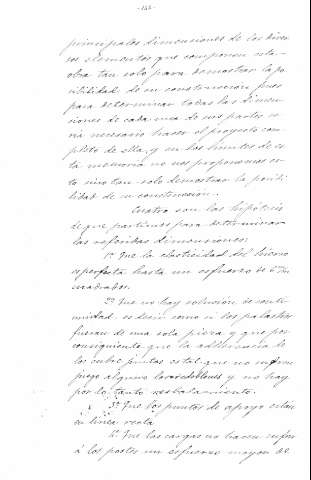 principales dimensiones de los diver
sos elementos que componen esta
obra tan solo para demostrar la po
sibilidad de su construccion pues
para determinar todas las dimen
siones de cada una de sus partes se
ria necesario hacer el proyecto com
pleto de ella, y en los limites de es
ta memoria no nos proponemos es
to sino tan solo demostrar la posibi
lidad de su construccion.
Cuatro son las hipótesis
de que partimos para determinar
las referidas dimensiones:
1ª Que la elasticidad del hierro
es perfecta hasta un esfuerzo de
cuadrados.
2ª Que no hay solucion de conti
nuidad, es decir como si los palastros
fueran de una sola pieza y que por
consiguiente que la adherencia de
los cubre juntas es tal que no
juego alguno los redoblones y no hay
por lo tanto resbalamiento.
3ª Que los puntos de apoyo están
en linea recta
4ª Que las cargas no hacen sufrir
á las partes un esfuerzo mayor de